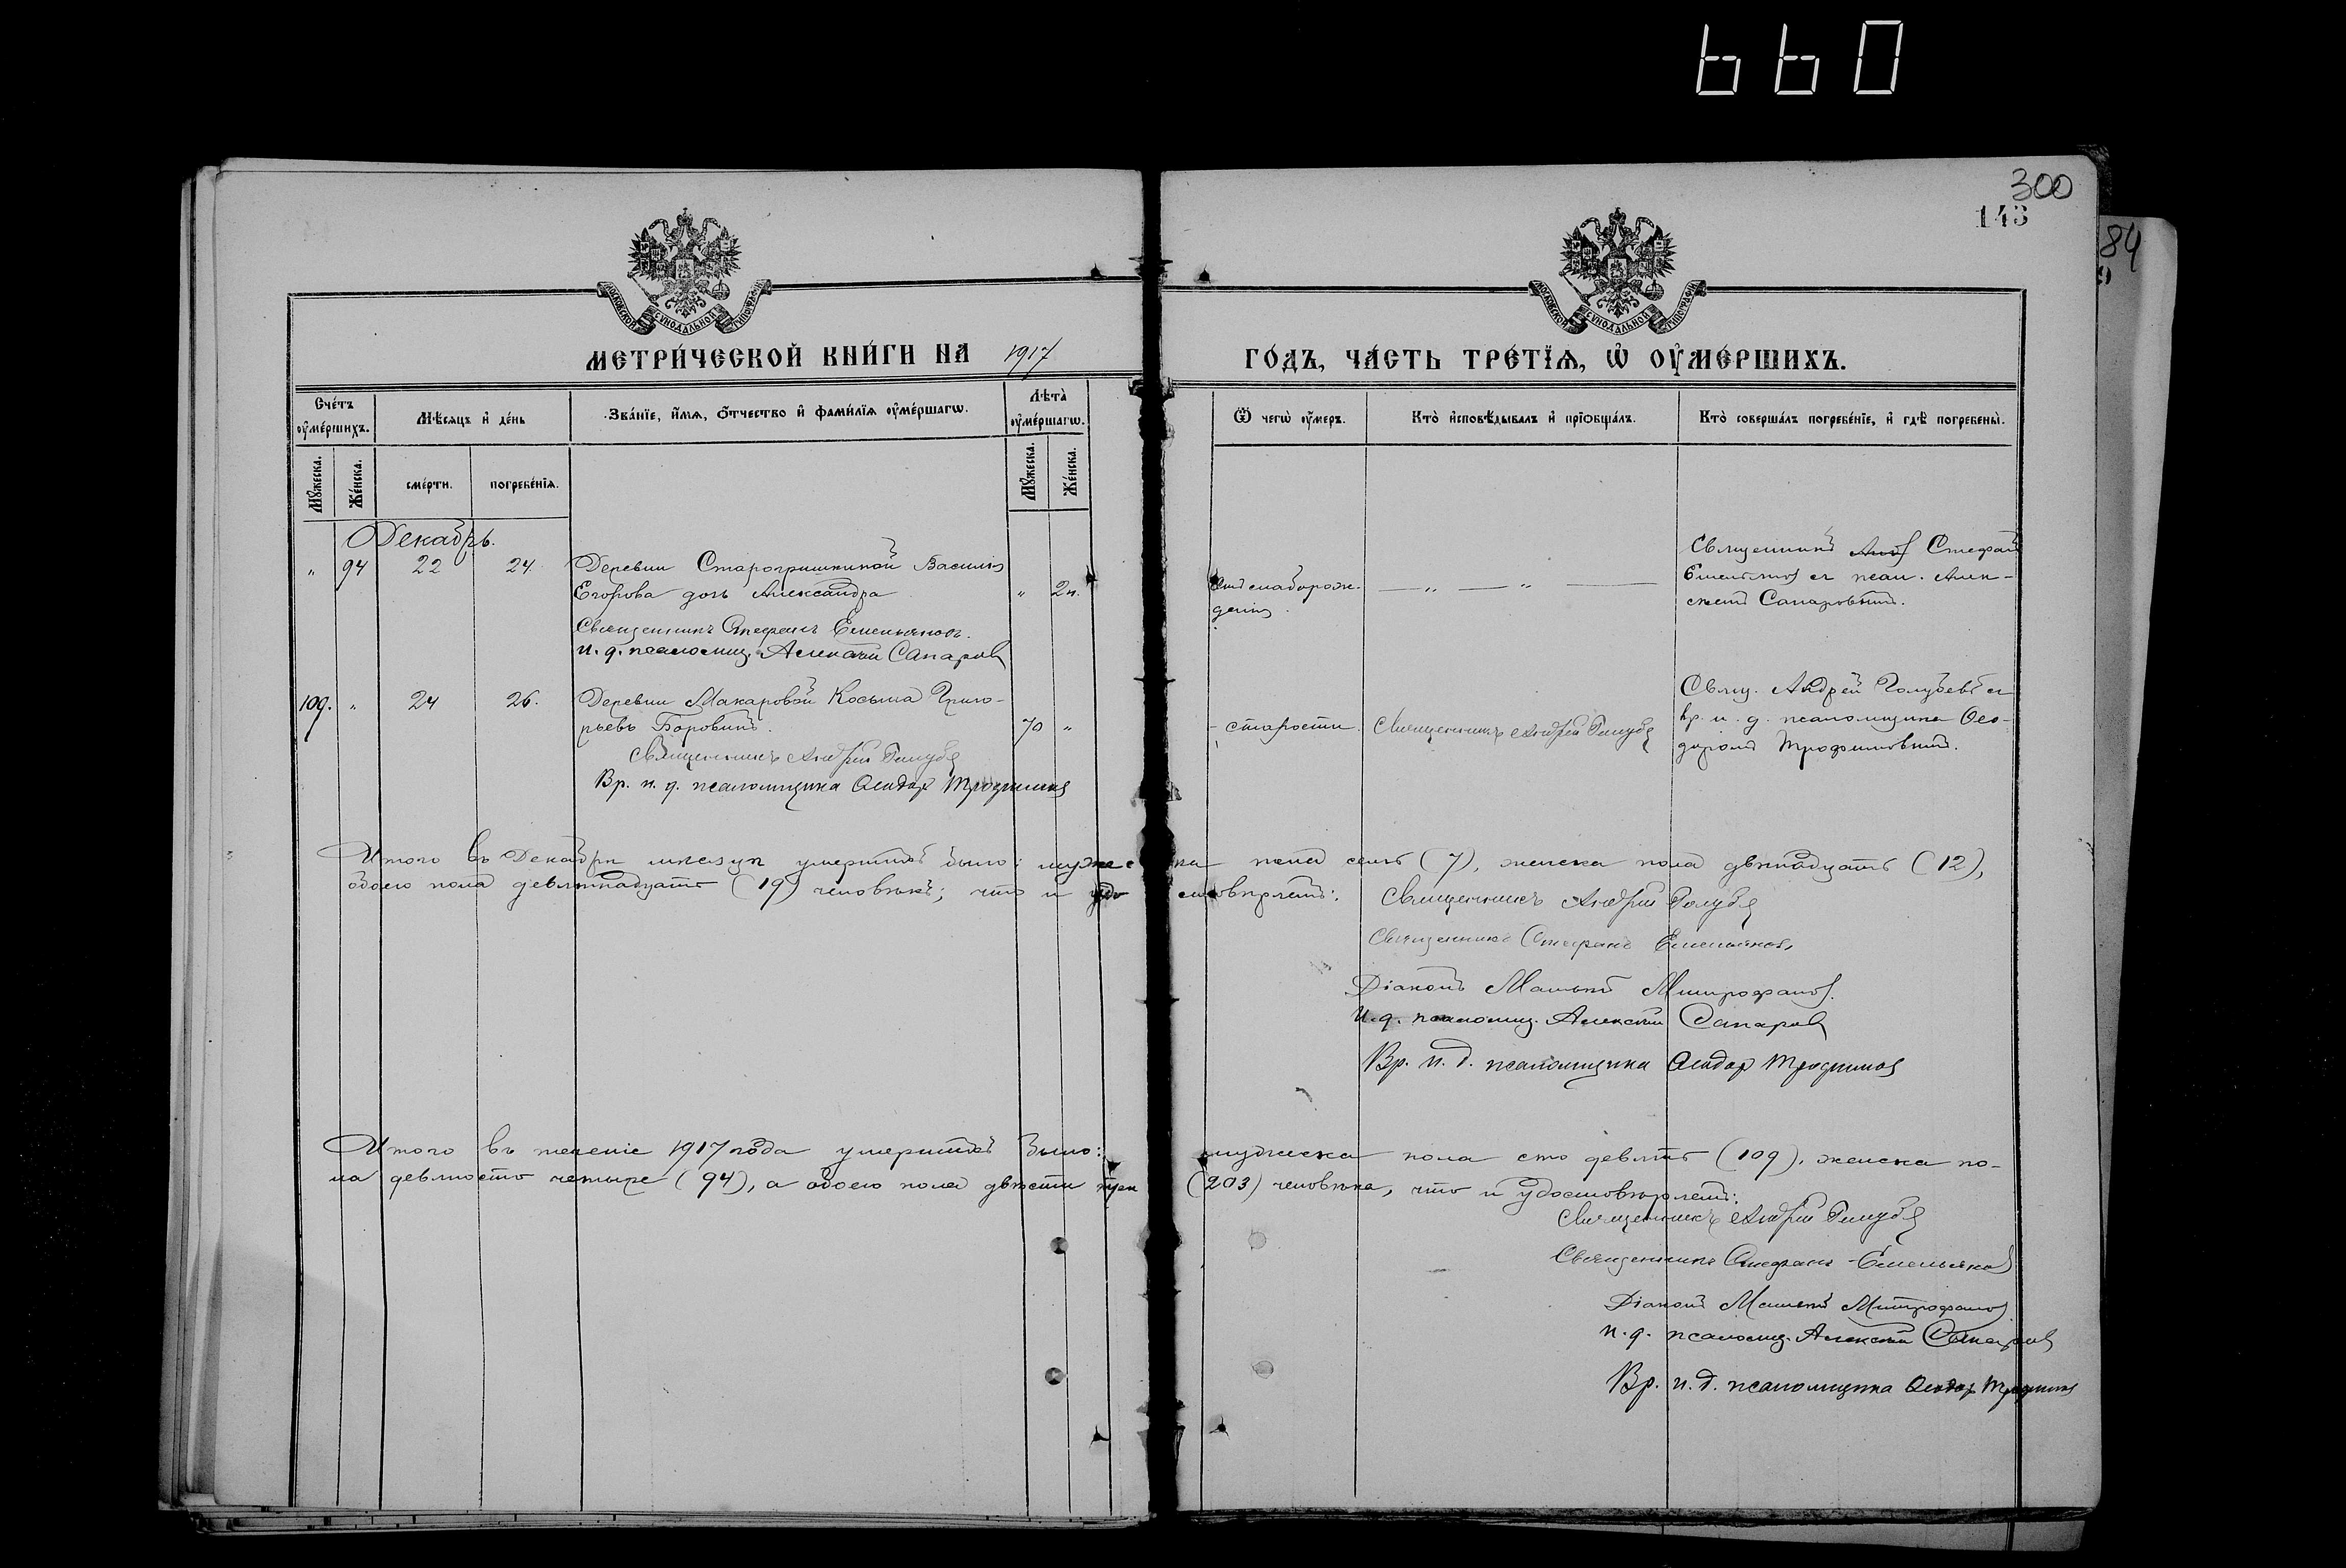 660
300
143
84
МОСКОВСКОЙ СУНОДАЛЬНОЙ ТИПОГРАФІИ
МОСКОВСКОЙ СУНОДАЛЬНОЙ ТИПОГРАФІИ
МЕТРИ́ЧЕСКОЙ КНИ́ГИ НА 1917
ГО́ДЪ, ЧА́СТЬ ТРЕ́ТЇѦ, Ѡ҆ ОУ҆МЕ́РШИХЪ.
Сче́тъ оу҆ме́ршихъ.
Мѣ́сяцъ и҆ де́нь
Зва́нїе, и҆́мѧ, ѻ҆́тчество и҆ фами́лїѧ оу҆ме́ршагѡ.
Лѣ́та оу҆ме́ршагѡ.
Ѿ чегѡ̀ оу҆́меръ.
Кто̀ и҆сповѣ́дывалъ и҆ прїѻбща́лъ.
Кто̀ соверша́лъ погребе́нїе, и҆ гдѣ̀ погребены̀.
Му́жеска.
Же́нска.
сме́рти.
погребе́нїѧ.
Му́жеска.
Же́нска.
Декабрь.
" 94 22 24. Деревни Старогришкиной Василія
Егорова дочь Александра " 2н.
Священникъ Стефанъ Емельяновъ.
и. д. псаломщ. Алексѣй Сапаровъ
Отъ слаборож-
денія.
— " — " —
Священникъ Стефанъ
Емельяновъ съ псал. Алек-
сѣемъ Сапаровымъ.
109. " 24 26. Деревни Макаровой Косьма Григо-
рьевъ Боровинъ. 70 "
Священникъ Андрей Голубевъ
Вр. и. д. псаломщика Ѳеодоръ Трофимовъ
старости.
Священникъ Андрей Голубевъ
Свящ. Андрей Голубевъ съ
вр. и. д. псаломщика Ѳео-
доромъ Трофимовымъ.
Итого въ Декабрѣ мѣсяцѣ умершихъ было: мужеска пола семь (7), женска пола двѣнадцать (12),
обоего пола девятнадцать (19) человѣкъ; что и удостовѣряемъ:
Священникъ Андрей Голубевъ
Священникъ Стефанъ Емельяновъ,
Діаконъ Матвѣй Митрофановъ.
И. д. псаломщ. Алексѣй Сапаровъ
Вр. и. д. псаломщика Ѳеодоръ Трофимовъ
Итого въ теченіе 1917 года умершихъ было: мужеска пола сто девять (109), женска по-
ла девяносто четыре (94), а обоего пола двѣсти три (203) человѣка, что и удостовѣряемъ:
Священникъ Андрей Голубевъ
Священникъ Стефанъ Емельяновъ
Діаконъ Матвѣй Митрофановъ
и. д. псаломщ. Алексѣй Сапаровъ
Вр. и. д. псаломщика Ѳеодоръ Трофимовъ